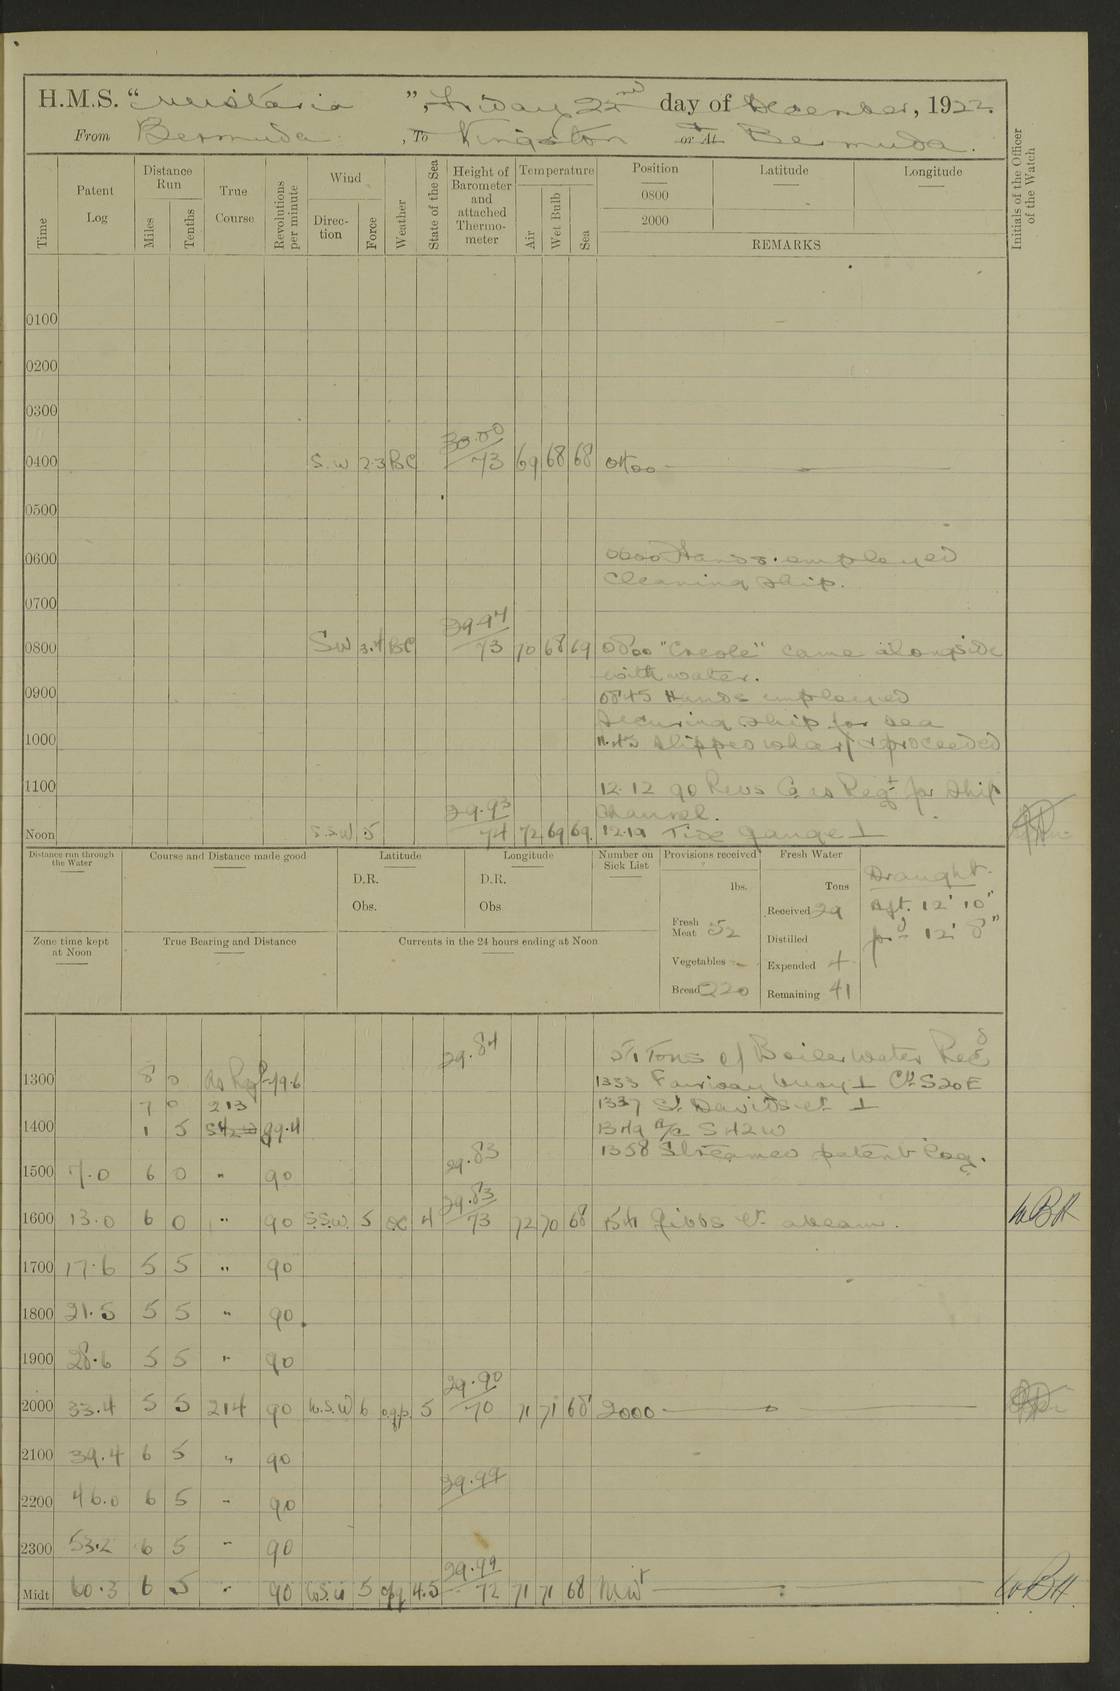 H.M.S. “Wistaria”, Friday 22nd day of December, 1922.
From Bermuda, To Kingston or At Bermuda.
Time
Patent Log
Distance Run
Miles
Tenths
True Course
Revolutions per minute
Wind
Direction
Force
Weather
State of the Sea
Height of Barometer and attached Thermometer
Temperature
Air
Wet Bulb
Sea
Position
0800
2000
Latitude
Longitude
REMARKS
Initials of the Officer of the Watch
0100
0200
0300
30.00
0400 S.W 2.3 BC 73 69 68 68 0400
0500
0600 0600 Hands employed
Cleaning ship.
0700
29.97
0800 SW 3.4 BC 73 70 68 69 0800 "Creole" came alongside
with water.
0900 0845 Hands employed
securing ship for sea
1000 slipped wharf & proceeded
1100 12.12 90 Revs Co as Reqt for Ship
Channel.
29.93
Noon S.S.W 5 74 72 69 69. 12.19 Tide Gauge ⊥
Distance run through the Water
Course and Distance made good
Latitude
D.R.
Obs.
Longitude
D.R.
Obs
Number on Sick List
Provisions received
lbs.
Fresh Meat 52
Vegetables -
Bread 220
Fresh Water
Tons
Received 29
Distilled
Expended 4
Remaining 41
Draught.
Aft. 12' 10"
ford 12' 8"
Zone time kept at Noon
True Bearing and Distance
Currents in the 24 hours ending at Noon
29.84
Tons of Boiler water Recd
1300 8 0 as Reqt 79.6 1333 Fairway buoy ⊥ Co S20E
7 0 213 1337 St Davids Lt ⊥
1400 1 5 S42W 89.4 1349 a/c S42W
29.83 1358 Streamed patent log.
1500 7.0 6 0 " 90
29.83
1600 13.0 6 0 " 90 S.S.W. 5 BC 4 73 72 70 68 Gibbs Lt abeam. WBH
1700 17.6 5 5 " 90
1800 21.5 5 5 " 90
1900 28.6 5 5 " 90
29.90
2000 33.4 5 5 214 90 W.S.W 6 o.q.p. 5 70 71 71 68 2000
2100 39.4 6 5 " 90
29.97
2200 46.0 6 5 " 90
2300 53.2 6 5 " 90
29.99
Midt 60.3 6 5 " 90 W.S.W 5 4.5 72 71 71 68 Midt WBH